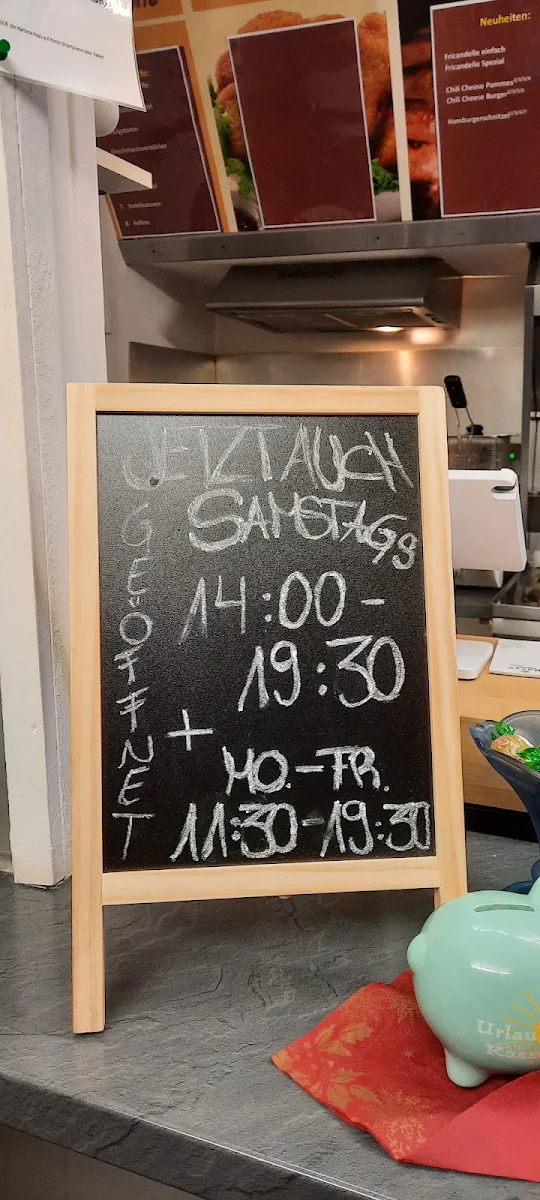 Neuheiten:
Fricandelle einfach
Fricandelle Spezial
Chili Cheese Pommes
Chili Cheese Burger
Hamburgerschnitzel
Geschmacksverstärker
7. Stabilisatoren
JETZT AUCH
SAMSTAGS
14:00-
19:30
+
MO.-FR.
11:30-19:30
GEÖFFNET
Urlau
Kass